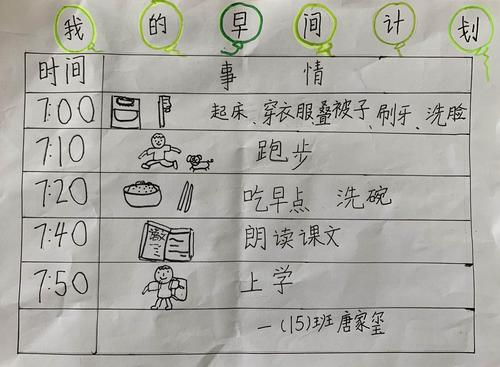 我的早间计划
时间 事情
7:00 起床、穿衣服叠被子、刷牙、洗脸
7:10 跑步
7:20 吃早点 洗碗
7:40 朗读课文
7:50 上学
一(15)班 唐家玺